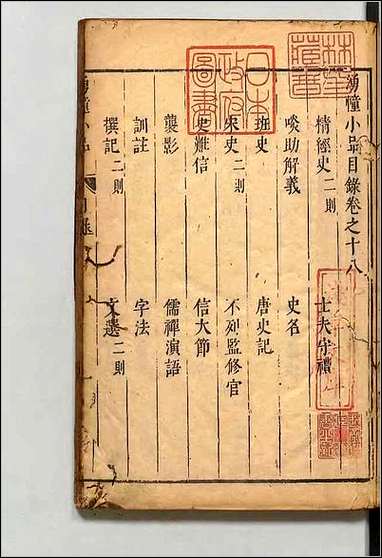 湧幢小品目錄卷之十八
情經史二則　士夫守禮
啖助解義　史名
班史　唐史記
宋史二則　不列監修官
史難信　信大節
襲影　儒禪演語
訓註　字法
撰記二則　文選二則
湧幢小品
目錄
日本
政府
圖書